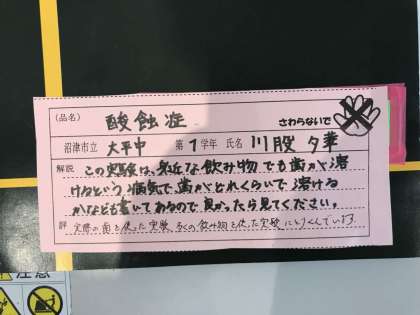 (品名) 酸蝕症 さわらないで
沼津市立 大平中 第1学年 氏名 川股 夕華
解説 この実験は、身近な飲み物でも歯が溶
けるという病気で、歯がどれくらいで溶ける
かなども書いてあるので良かったら見てください。
評 実際の歯を使った実験、多くの飲み物を使った実験にとりくんでいます。
注意